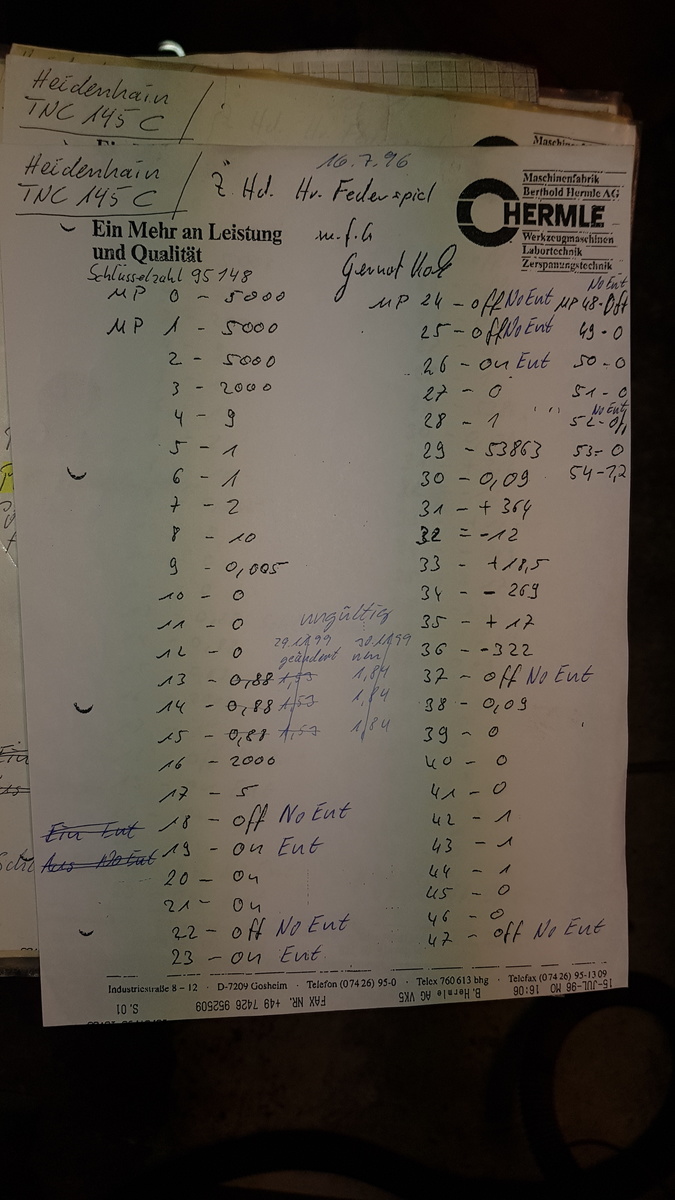 Heidenhain
TNC 145 C
Heidenhain
TNC 145 C
16.7.96
Z. Hd. Hr. Federspiel
Maschinenfabrik
Berthold Hermle AG
HERMLE
Werkzeugmaschinen
Labortechnik
Zerspanungstechnik
Ein Mehr an Leistung
und Qualität
m.f.G
Gernot
Schlüsselzahl 95148
MP 0 - 5000
MP 1 - 5000
2 - 5000
3 - 2000
4 - 9
5 - 1
6 - 1
7 - 2
8 - 10
9 - 0,005
10 - 0
11 - 0
12 - 0
ungültig
29.11.99 30.11.99
geändert neu
13 - 0,88 1,53 1,84
14 - 0,88 1,53 1,84
15 - 0,88 1,53 1,84
16 - 2000
17 - 5
18 - off No Ent
19 - on Ent
20 - on
21 - on
22 - off No Ent
23 - on Ent
Ein Ent
Aus No Ent
MP 24 - off No Ent
25 - off No Ent
26 - on Ent
27 - 0
28 - 1
29 - 53863
30 - 0,09
31 - + 364
32 = -12
33 - +18,5
34 - - 269
35 - + 17
36 - -322
37 - off No Ent
38 - 0,09
39 - 0
40 - 0
41 - 0
42 - 1
43 - 1
44 - 1
45 - 0
46 - 0
47 - off No Ent
No Ent
MP 48 - off
49 - 0
50 - 0
51 - 0
No Ent
52 - off
53 - 0
54 - 1,2
Industriestraße 8 – 12 · D-7209 Gosheim · Telefon (07426) 95-0 · Telex 760613 bhg · Telefax (07426) 95-1309
15-JUL-96 MO 16:06 B. Hermle AG VK5 FAX NR. +49 7426 952509 S. 01